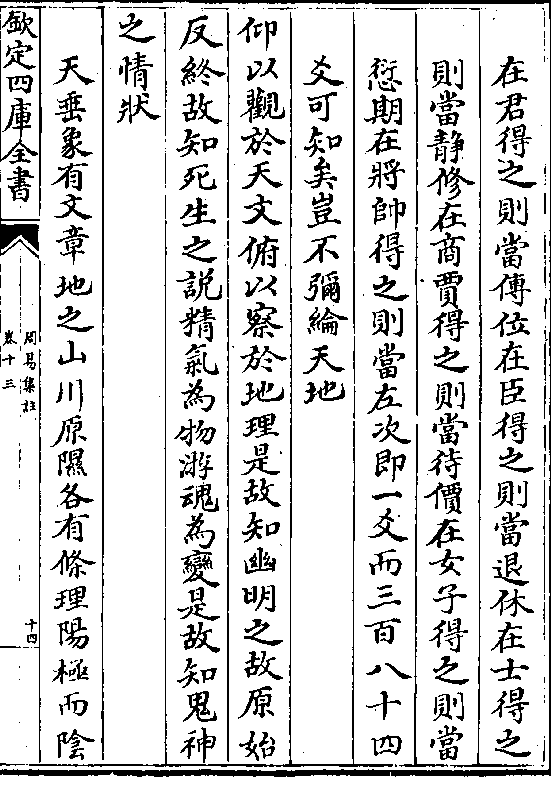 在君得之則當傳位在臣得之則當退休在士得之
則當静修在商賈得之則當待價在女子得之則當
愆期在將帥得之則當左次即一爻而三百八十四
爻可知矣豈不彌綸天地
仰以觀於天文俯以察於地理是故知幽明之故原始
反終故知死生之説精氣為物游魂為變是故知鬼神
之情狀
天垂象有文章地之山川原隰各有條理陽極而陰
欽定四庫全書
周易集註
卷十三
十四